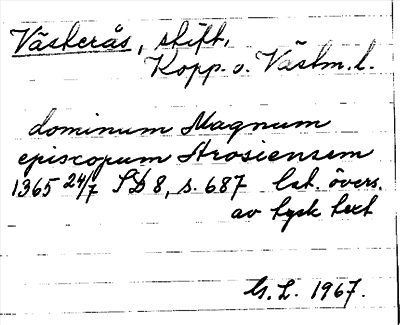 Västerås, stift.
Kopp. o. Västm. l.
dominum Magnum
episcopum Arosiensem
1365 24/7 SD 8, s. 687 lat. övers.
av tysk text
G. L. 1967.